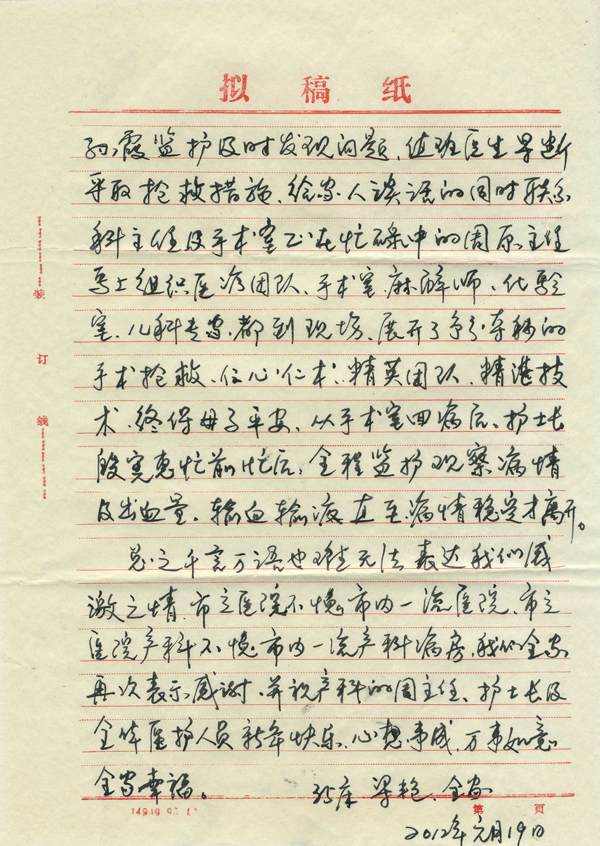 拟稿纸
孙霞监护及时发现问题、值班医生果断
采取抢救措施、给家人谈话的同时联系
科主任及手术室正在忙碌中的周原主任
马上组织医疗团队、手术室、麻醉师、化验
室、儿科专家、都到现场、展开了争分夺秒的
手术抢救、仁心仁术、精英团队、精湛技
术、终保母子平安、从手术室回病房、护士长
殷宪惠忙前忙后、全程监护观察病情
及出血量、输血输液、直至病情稳定才离开。
总之千言万语也难无法表达我们感
激之情、市立医院不愧市内一流医院、市立
医院产科不愧市内一流产科病房、我们全家
再次表示感谢、并祝产科的周主任、护士长及
全体医护人员新年快乐、心想事成、万事如意
全家幸福。
35床 梁艳 全家
第 页
2012年元月19日
装
订
线